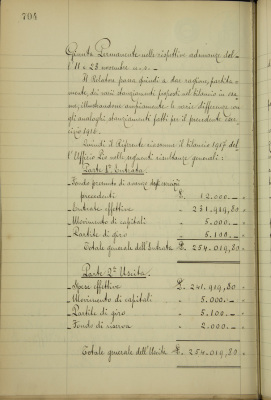 704
Giunta Permanente nelle rispettive adunanze del-
l'11 e 23 novembre u. s.-
Il Relatore passa quindi a dar ragione, partita-
mente, dei varii stanziamenti proposti nel bilancio in esa-
me, illustrandone ampiamente le varie differenze con
gli analoghi stanziamenti fatti per il precedente Eser-
cizio 1916.-
Quindi il Riferente riassume il bilancio 1917 del-
l'Ufficio Pio nelle seguenti risultanze generali:
Parte 1ª Entrata.-
Fondo presunto di avanzo degli esercizi
precedenti £. 12.000.-
Entrate effettive " 231.919,80
Movimento di capitali " 5.000.-
Partite di giro " 5.100.-
Totale generale dell'Entrata £. 254.019,80
Parte 2ª Uscita.-
Spese effettive £. 241.919,80
Movimento di capitali " 5.000.-
Partite di giro " 5.100.-
Fondo di riserva " 2.000.-
Totale generale dell'Uscita £. 254.019,80